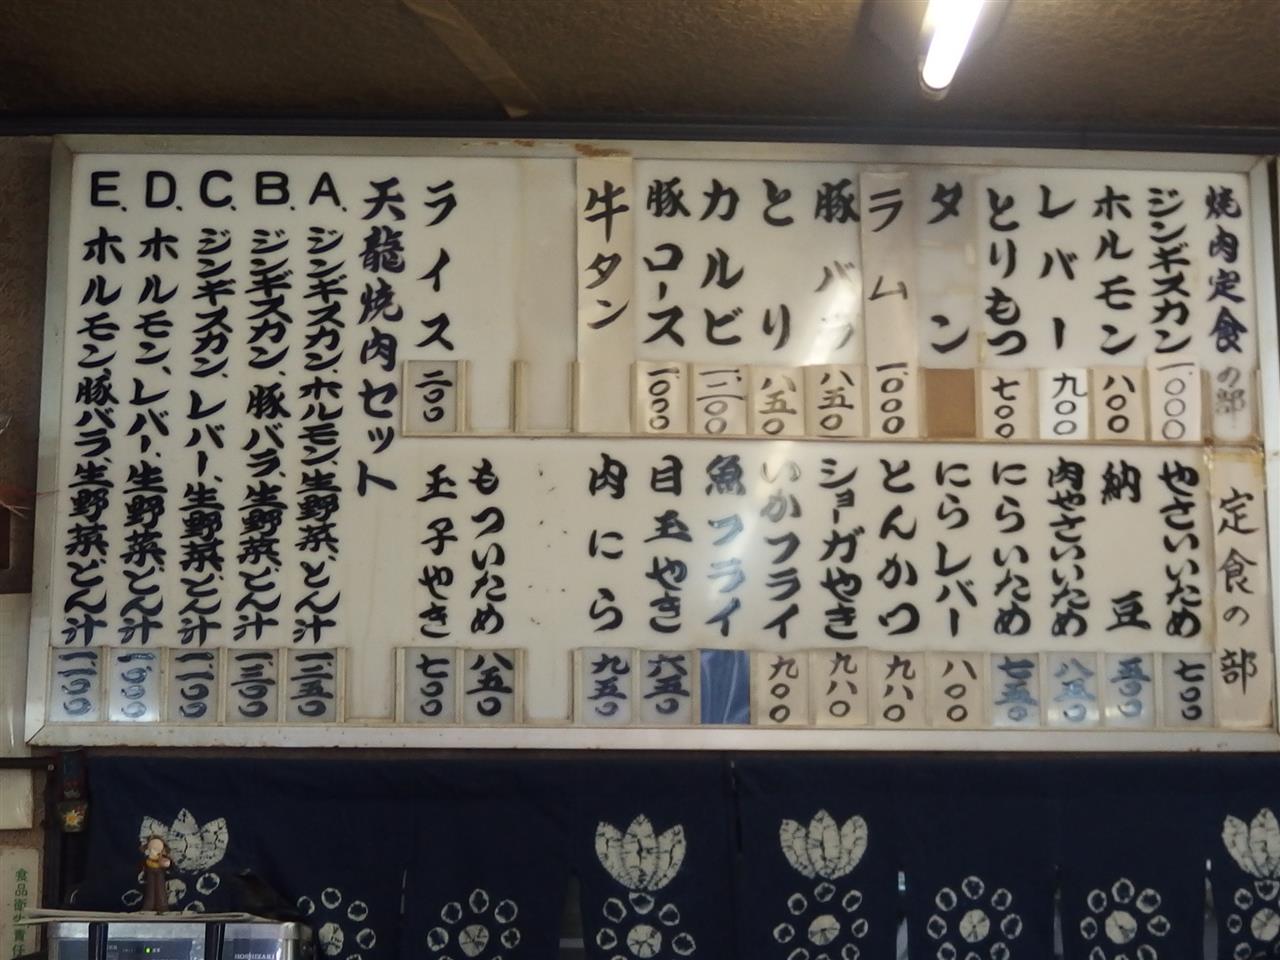 焼肉定食の部
ジンギスカン 一、〇〇〇
ホルモン 八〇〇
レバー 九〇〇
とりもつ 七〇〇
タン
ラム 一、〇〇〇
豚バラ 八五〇
とり 八五〇
カルビ 一、二〇〇
豚ロース 一、〇〇〇
牛タン
ライス 二〇〇
定食の部
やさいいため 七〇〇
納豆 五〇〇
肉やさいいため 八五〇
にらいため 七五〇
にらレバー 八〇〇
とんかつ 九八〇
ショーガやき 九八〇
いかフライ 九〇〇
魚フライ
目玉やき 六五〇
肉にら 九五〇
もついため 八五〇
玉子やき 七〇〇
天龍焼肉セット
A、ジンギスカン、ホルモン、生野菜、どん汁 一、二五〇
B、ジンギスカン、豚バラ、生野菜、どん汁 一、三〇〇
C、ジンギスカン、レバー、生野菜、どん汁 一、二〇〇
D、ホルモン、レバー、生野菜、どん汁
E、ホルモン、豚バラ、生野菜、どん汁 一、二〇〇
食品衛生責任